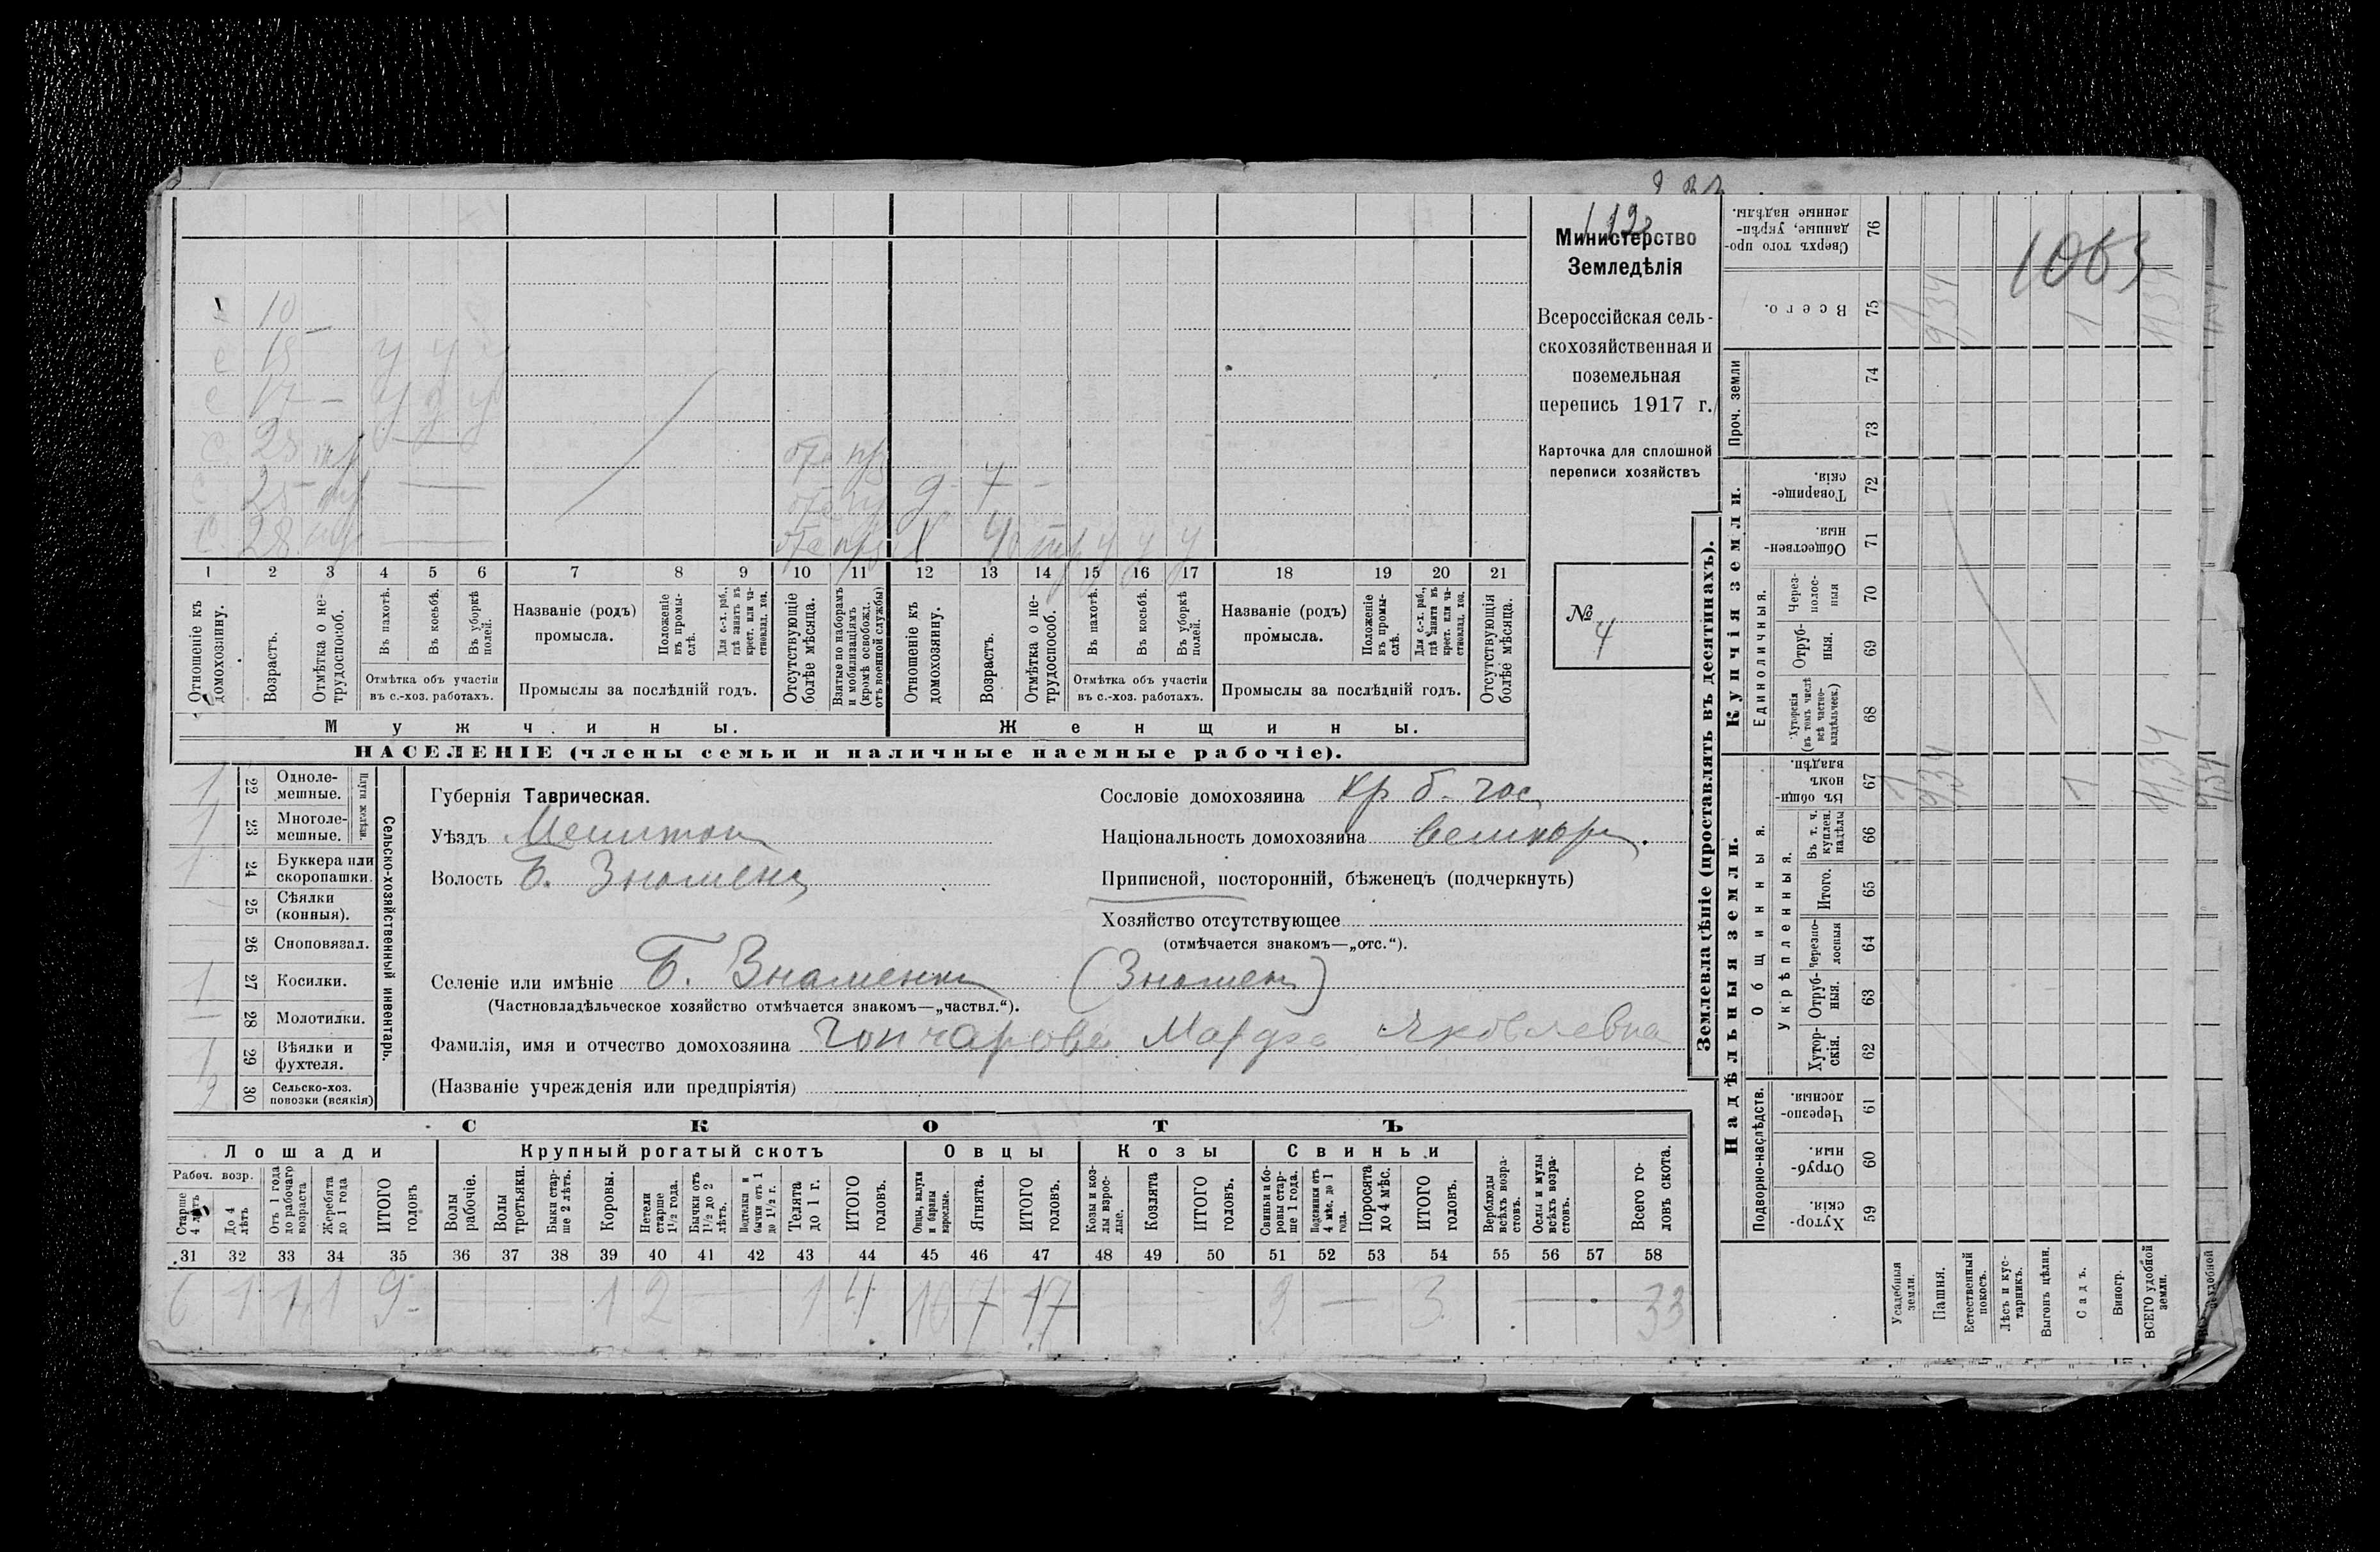 112
Министерство
Земледѣлія
Всероссійская сель-
скохозяйственная и
поземельная
перепись 1917 г.
Карточка для сплошной
переписи хозяйствъ
№ 4
1063
10 —
с 15 — у у у
с 17 — у у у
с 25
с 25
с 28
д 7 —
у у у
1 2 3 4 5 6 7 8 9 10 11 12 13 14 15 16 17 18 19 20 21
Отношеніе къ домохозяину.
Возрастъ.
Отмѣтка о не-трудоспособ.
Въ пахотѣ.
Въ косьбѣ.
Въ уборкѣ полей.
Отмѣтка объ участіи въ с.-хоз. работахъ.
Названіе (родъ) промысла.
Положеніе въ промы-слѣ.
Для с.-х. раб., гдѣ занятъ въ крест. или ча-стновлад. хоз.
Промыслы за послѣдній годъ.
Отсутствующіе болѣе мѣсяца.
Взятые по наборамъ и мобилизаціямъ (кромѣ освобожд. отъ военной службы)
Отношеніе къ домохозяину.
Возрастъ.
Отмѣтка о не-трудоспособ.
Въ пахотѣ.
Въ косьбѣ.
Въ уборкѣ полей.
Отмѣтка объ участіи въ с.-хоз. работахъ.
Названіе (родъ) промысла.
Положеніе въ промы-слѣ.
Для с.-х. раб., гдѣ занята въ крест. или ча-стновлад. хоз.
Промыслы за послѣдній годъ.
Отсутствующія болѣе мѣсяца.
Мужчины. Женщины.
НАСЕЛЕНІЕ (члены семьи и наличные наемные рабочіе).
1 22 Однолемешные.
1 23 Многолемешные.
1 24 Буккера или скоропашки.
25 Сѣялки (конныя).
26 Сноповязал.
1 27 Косилки.
— 28 Молотилки.
1 29 Вѣялки и фухтеля.
2 30 Сельско-хоз. повозки (всякія)
Сельско-хозяйственный инвентарь.
Губернія Таврическая.
Уѣздъ Мелитоп
Волость Б. Знаменс
Сословіе домохозяина кр б. гос
Національность домохозяина великор.
Приписной, посторонній, бѣженецъ (подчеркнуть)
Хозяйство отсутствующее
(отмѣчается знакомъ—„отс.“).
Селеніе или имѣніе Б. Знаменка (Знамен)
(Частновладѣльческое хозяйство отмѣчается знакомъ—„частвл.“).
Фамилія, имя и отчество домохозяина Гончарова Марфа Яковлевна
(Названіе учрежденія или предпріятія)
СКОТЪ
Лошади Крупный рогатый скотъ Овцы Козы Свиньи
Рабоч. возр.
Старше 4 лѣтъ
До 4 лѣтъ
Отъ 1 года до рабочаго возраста
Жеребята до 1 года
ИТОГО головъ
Волы рабочіе.
Волы третьяки.
Быки стар-ше 2 лѣтъ.
Коровы.
Нетели старше 1½ года.
Бычки отъ 1½ до 2 лѣтъ.
Подтелки и бычки отъ 1 до 1½ г.
Телята до 1 г.
ИТОГО головъ.
Овцы, валухи и бараны взрослые.
Ягнята.
ИТОГО головъ.
Козы и коз-лы взрос-лые.
Козлята
ИТОГО головъ.
Свиньи и бо-ровы стар-ше 1 года.
Подсвинки отъ 4 мѣс. до 1 года.
Поросята до 4 мѣс.
ИТОГО головъ.
Верблюды всѣхъ возра-стовъ.
Ослы и мулы всѣхъ возра-стовъ.
Всего го-ловъ скота.
31 32 33 34 35 36 37 38 39 40 41 42 43 44 45 46 47 48 49 50 51 52 53 54 55 56 57 58
6 1 1 1 9 — — — 1 2 — — 1 4 10 7 17 — — — 3 — 3 — — 33
Землевладѣніе (проставлять въ десятинахъ).
Надѣльныя земли. Купчія земли. Проч. земли
Подворно-наслѣдств. Общинныя. Укрѣпленныя. Единоличныя.
76 Сверхъ того про-данные, укрѣп-ленные надѣлы.
75 Всего.
74
73
72 Товарище-скія.
71 Обществен-ныя.
70 Через-полос-ныя
69 Отруб-ныя.
68 Хуторскія (въ томъ числѣ всѣ частно-владѣльческ.)
67 Въ общи-номъ владѣн.
66 Въ т. ч. куплен. надѣлы
65 Итого.
64 Черезпо-лосныя
63 Отруб-ныя.
62 Хутор-скія.
61 Черезпо-лосныя.
60 Отруб-ныя.
59 Хутор-скія.
Усадебныя земли.
Пашня.
Естественный покосъ.
Лѣсъ и кус-тарникъ.
Выгонъ цѣлин.
Садъ.
Виногр.
ВСЕГО удобной земли.
1 9,34 1 11,34
1 9,34 1 11,34